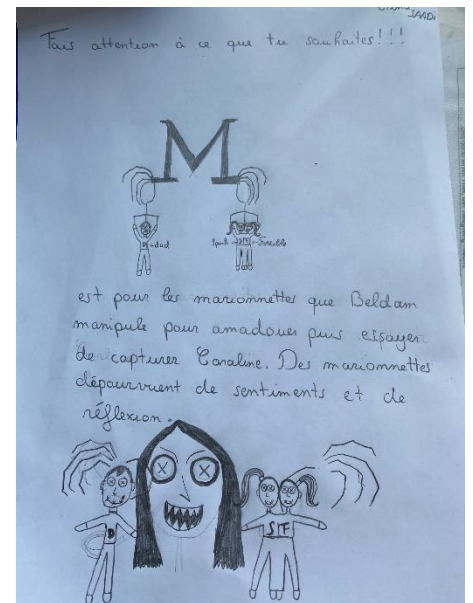 SAADi
Fais attention à ce que tu souhaites!!!
M
D → dad
Spink ← S/F → Forcible
est pour les marionnettes que Beldam
manipule pour amadouer puis essayer
de capturer Coraline. Des marionnettes
dépourvuent de sentiments et de
réflexion.
D
S/F